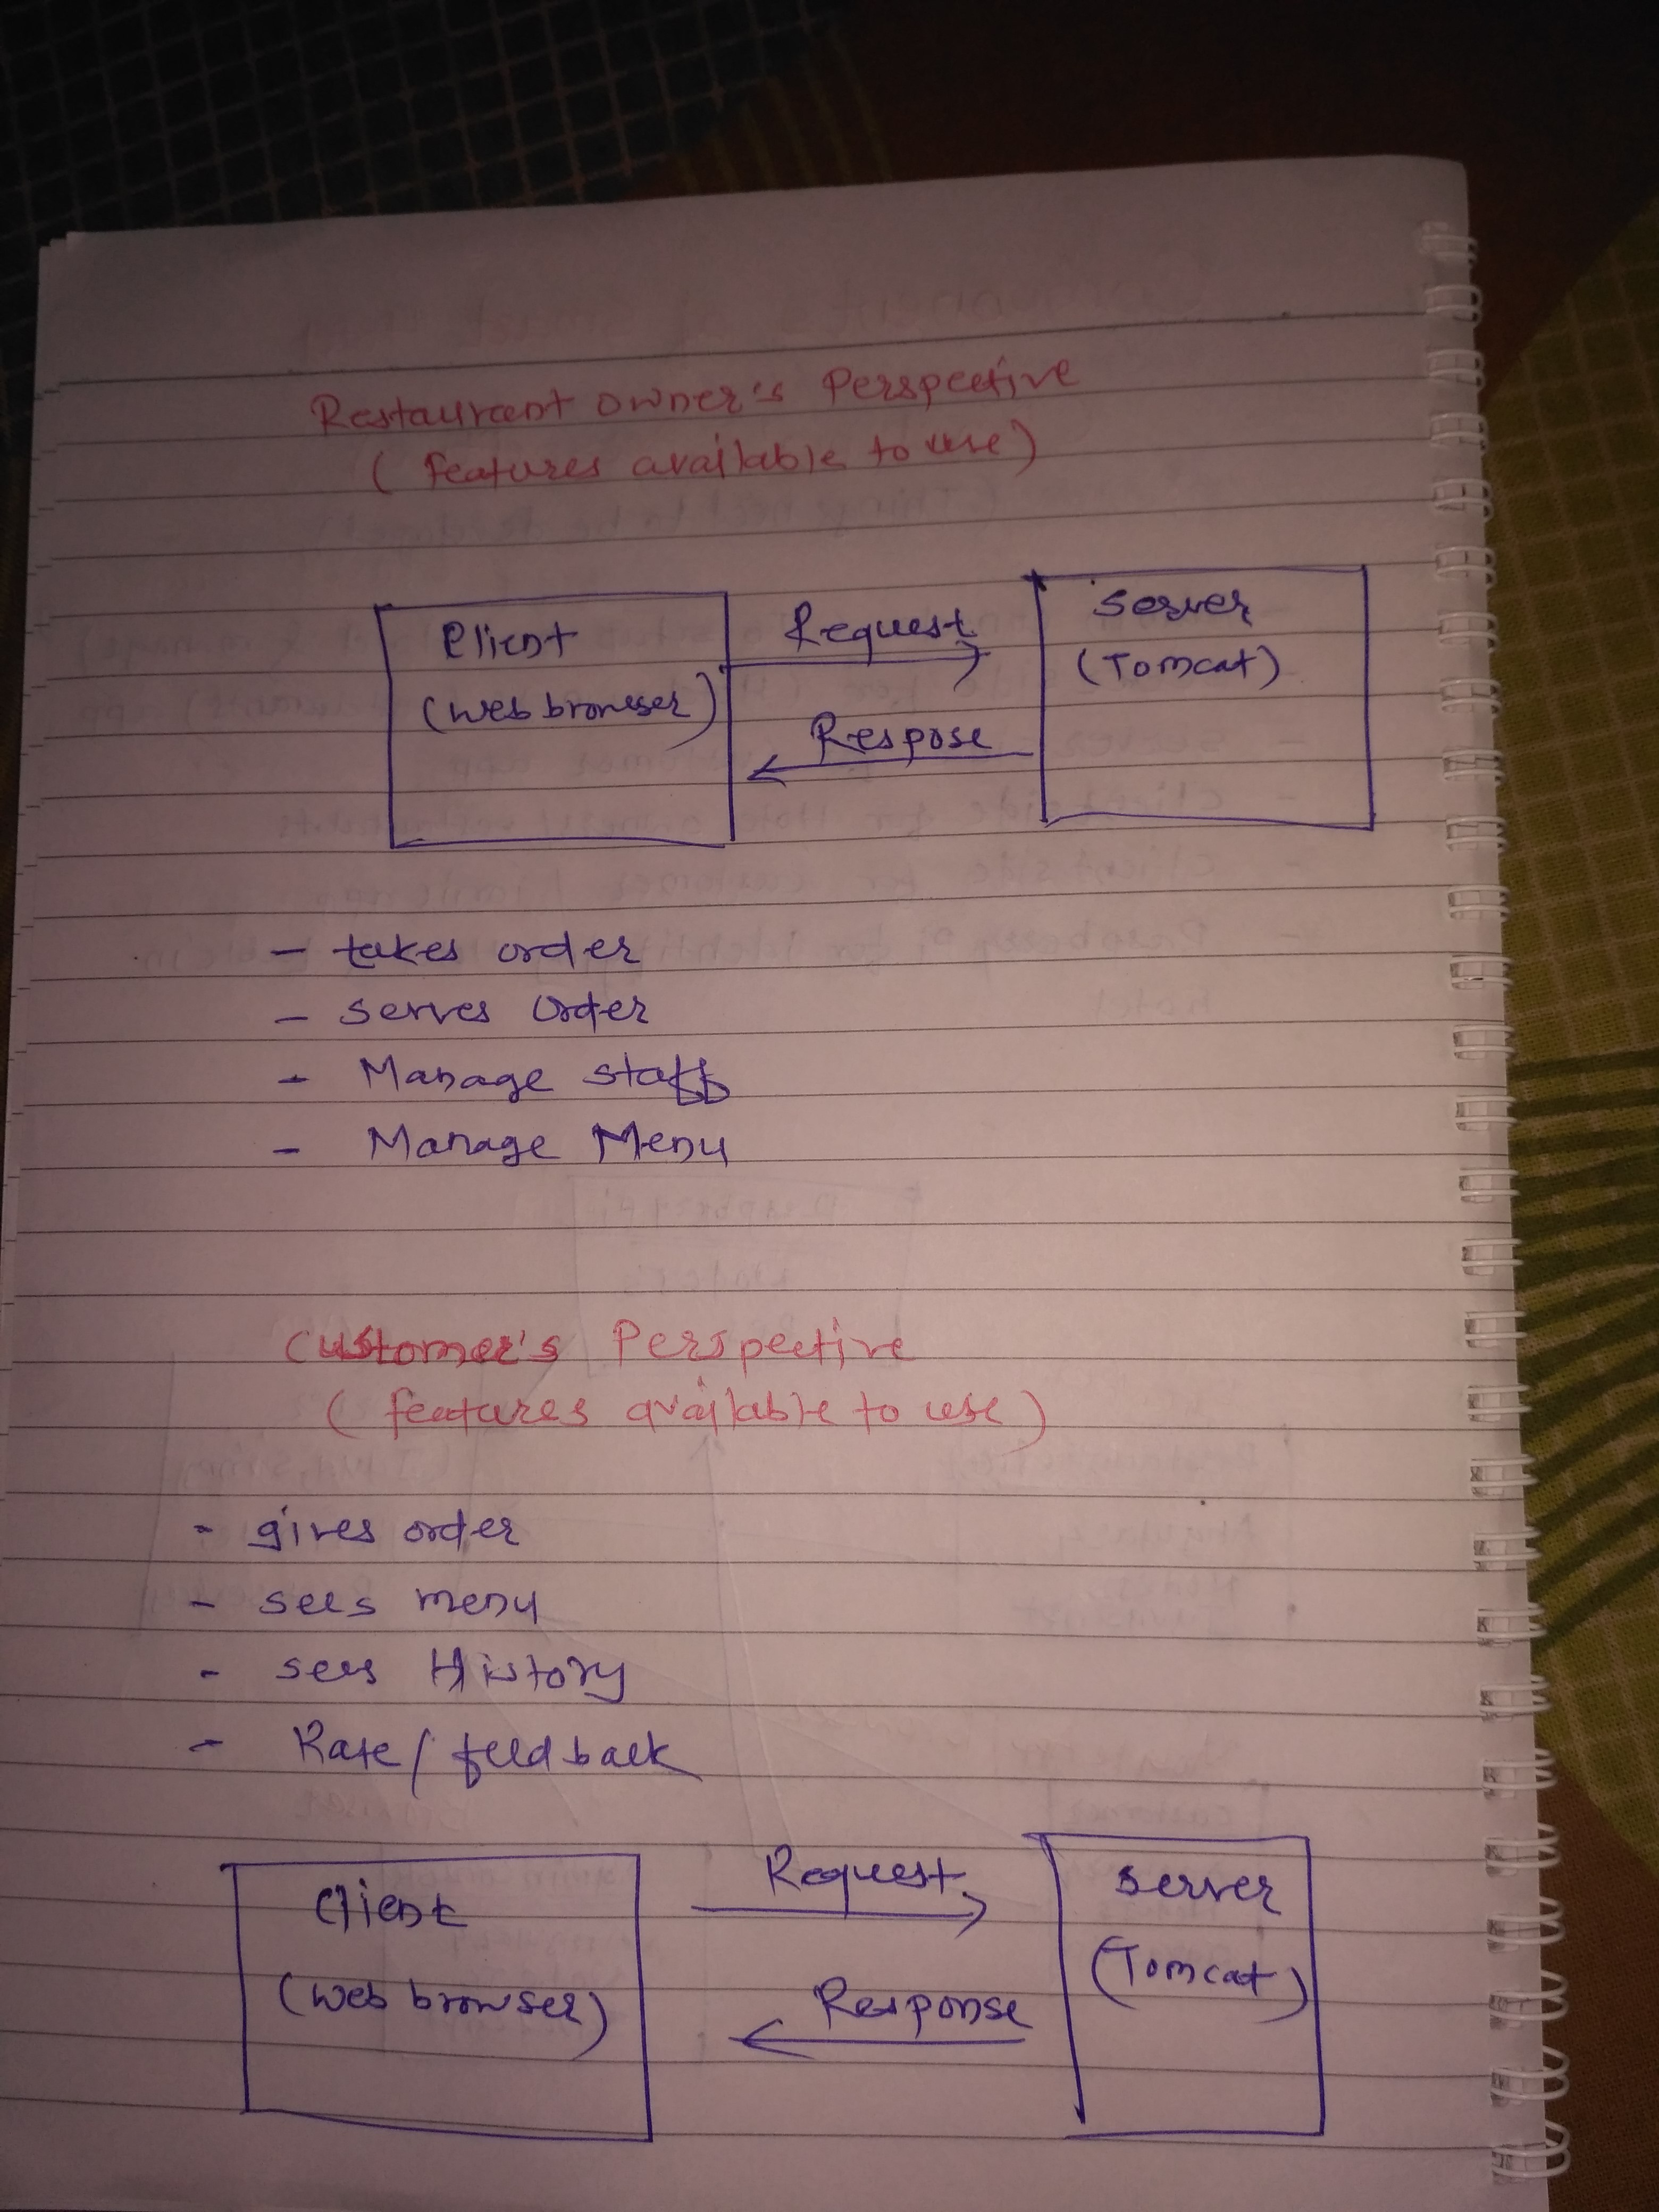 Restaurant owner's Perspective
( features available to use )
Client
(web browser)
Request
Respose
Server
(Tomcat)
- takes order
- serves order
- Manage staff
- Manage Menu
Customer's Perspective
( features available to use )
- gives order
- sees menu
- sees History
- Rate / feedback
Client
(web browser)
Request
Response
Server
(Tomcat)